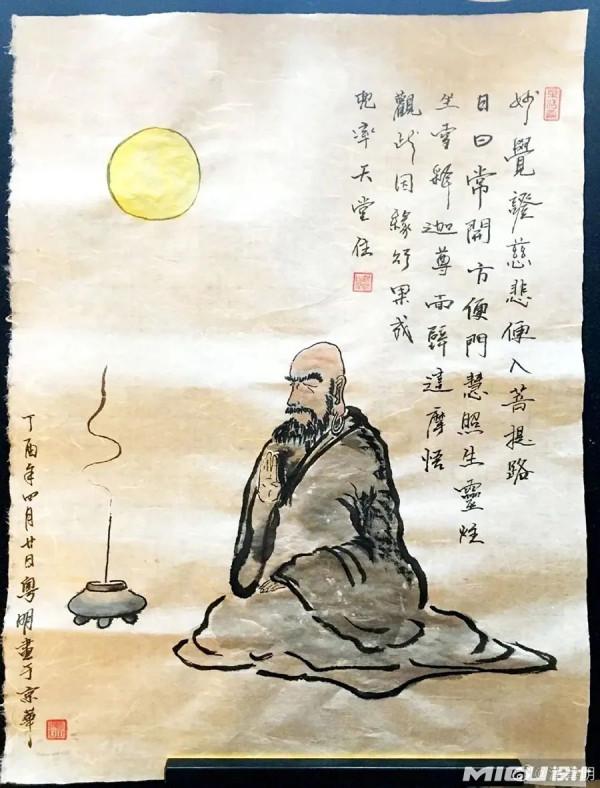 妙覺證慈悲便入菩提路
日日常開方便門慧照生靈炷
坐雪釋迦尊面壁達摩悟
觀此因緣行果成
兜率天堂住
丁酉年四月廿日粵明畫于京華
MIGU设计